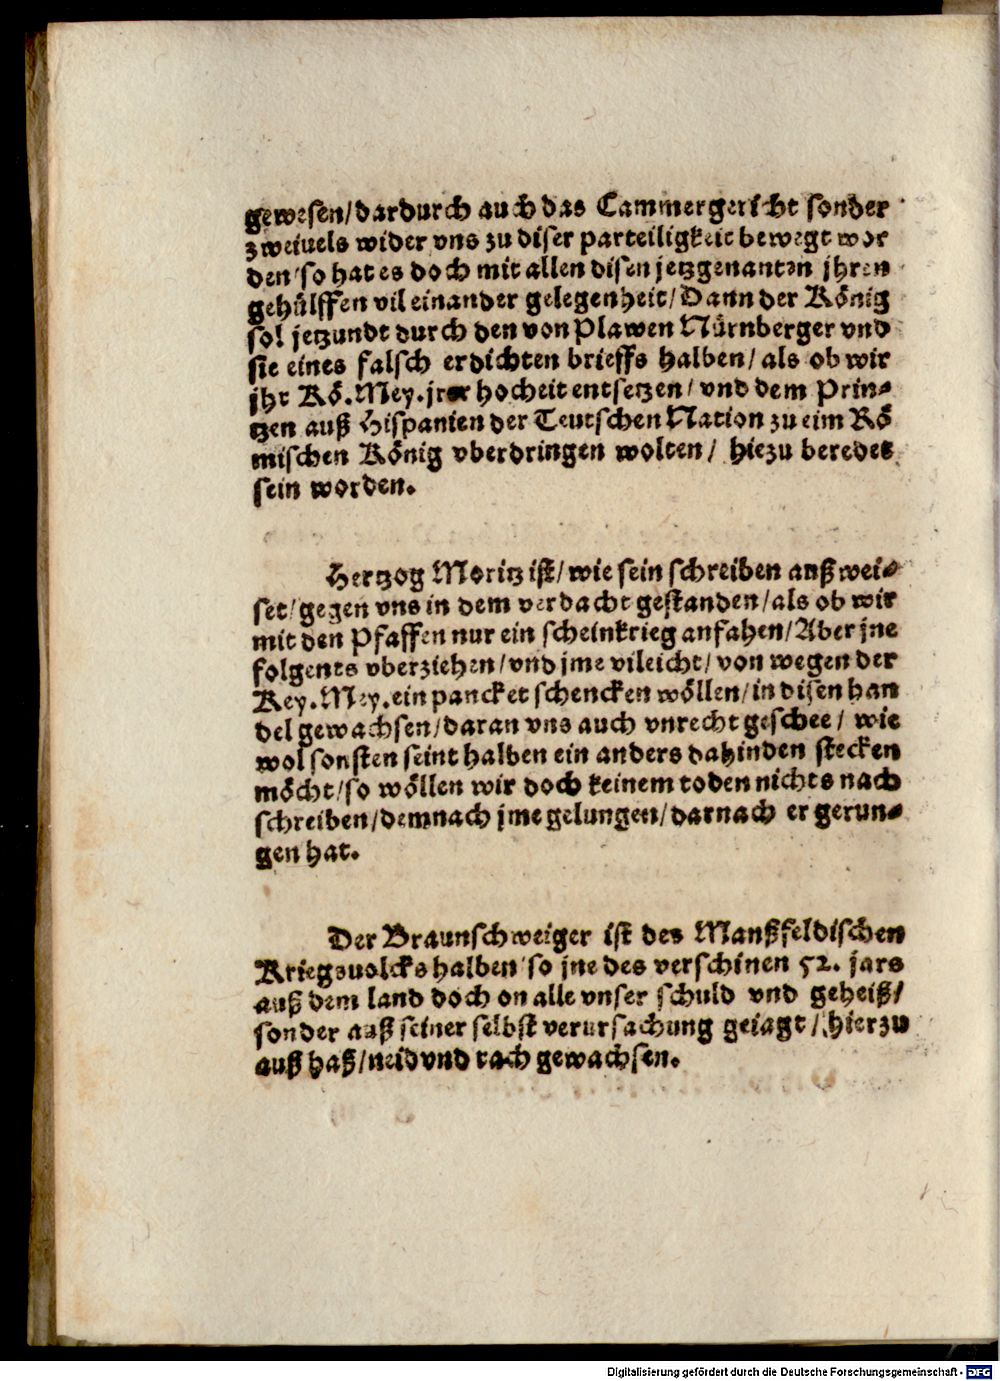 gewesen/dardurch auch das Cammergericht sonder
zweiuels wider vns zu diser parteiligkeit bewegt wor
den/so hat es doch mit allen disen jetzgenanten jhren
gehülffen vil einander gelegenheit/Dann der König
sol jetzundt durch den von Plawen Nürnberger vnd
sie eines falsch erdichten brieffs halben/als ob wir
jhr Kö.Mey.jrer hocheit entsetzen/vnd dem Prin-
tzen auß Hispanien der Teutschen Nation zu eim Rö
mischen König vberdringen wolten/ hiezu beredet
sein worden.
Hertzog Moritz ist/wie sein schreiben außwei-
set/gegen vns in dem verdacht gestanden/als ob wir
mit den Pfaffen nur ein scheinkrieg anfahen/Aber jne
folgents vberziehen/vnd jme vileicht/von wegen der
Key.Mey.ein pancket schencken wöllen/in disen han
del gewachsen/daran vns auch vnrecht geschee/ wie
wol sonsten seint halben ein anders dahinden stecken
möcht/so wöllen wir doch keinem toden nichts nach
schreiben/demnach jme gelungen/darnach er gerun-
gen hat.
Der Braunschweiger ist des Manßfeldischen
Kriegsuolcks halben/so jne des verschinen 52. jars
auß dem land doch on alle vnser schuld vnd geheiß/
sonder auß seiner selbst verursachung geiagt/hierzu
auß haß/neid vnd rach gewachsen.
Digitalisierung gefördert durch die Deutsche Forschungsgemeinschaft - DFG